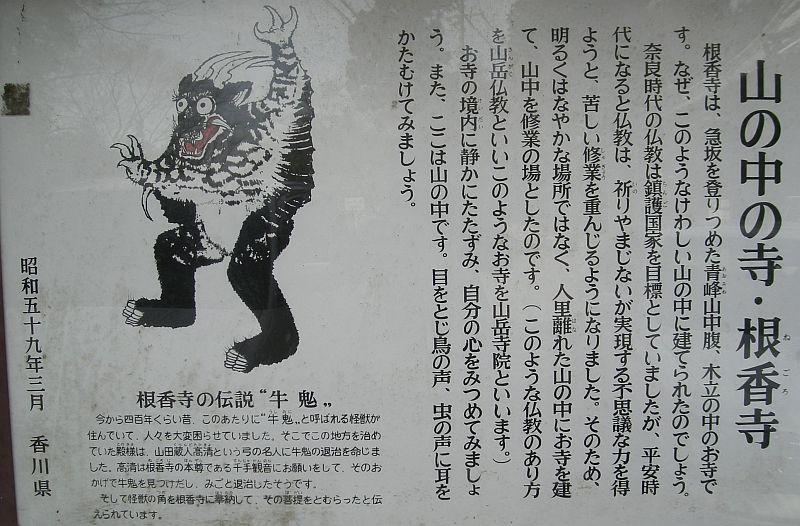 山の中の寺・根香寺
根香寺は、急坂を登りつめた青峰山中腹、木立の中のお寺で
す。なぜ、このようなけわしい山の中に建てられたのでしょう。
奈良時代の仏教は鎮護国家を目標としていましたが、平安時
代になると仏教は、祈りやまじないが実現する不思議な力を得
ようと、苦しい修業を重んじるようになりました。そのため、
明るくはなやかな場所ではなく、人里離れた山の中にお寺を建
て、山中を修業の場としたのです。（このような仏教のあり方
を山岳仏教といいこのようなお寺を山岳寺院といいます。）
お寺の境内に静かにたたずみ、自分の心をみつめてみましょ
う。また、ここは山の中です。目をとじ鳥の声、虫の声に耳を
かたむけてみましょう。
根香寺の伝説“牛鬼„
今から四百年くらい昔、このあたりに“牛鬼„と呼ばれる怪獣が
住んでいて、人々を大変困らせていました。そこでこの地方を治め
ていた殿様は、山田蔵人高清という弓の名人に牛鬼の退治を命じま
した。高清は根香寺の本尊である千手観音にお願いをして、そのお
かげで牛鬼を見つけだし、みごと退治したそうです。
そして怪獣の角を根香寺に奉納して、その菩提をとむらったと伝
えられています。
昭和五十九年三月 香川県